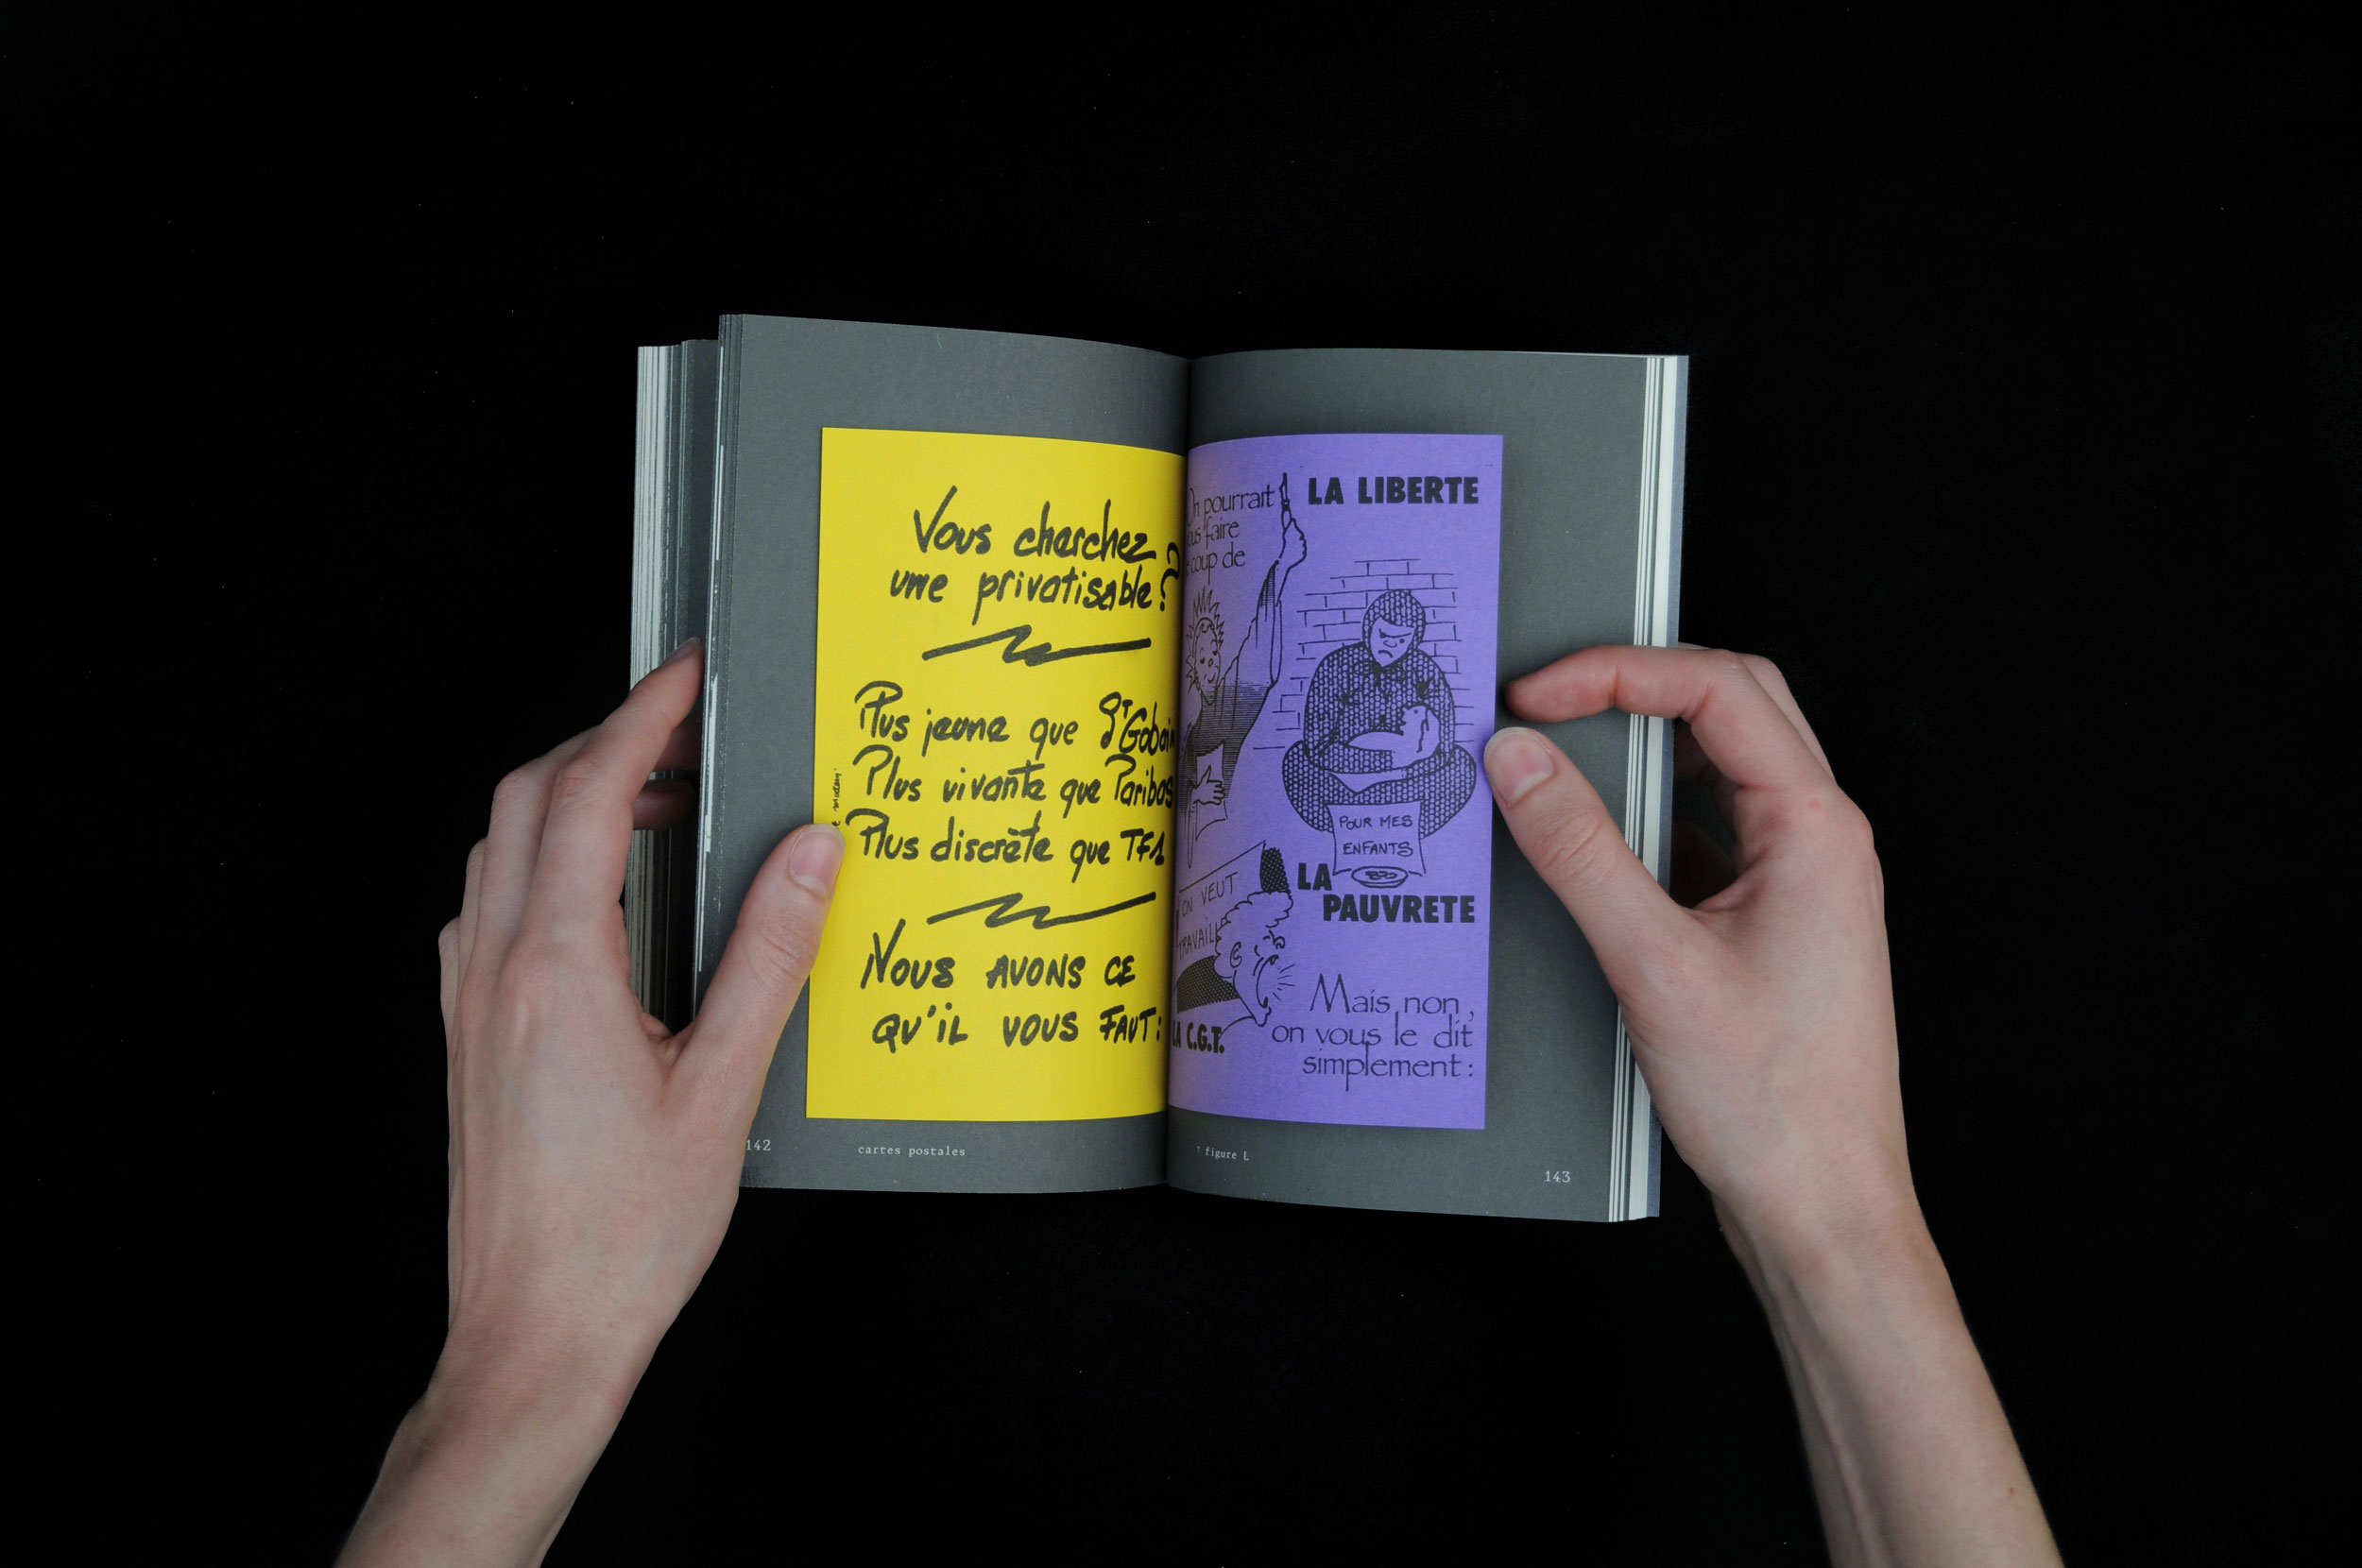 Vous cherchez
une privatisable ?
Plus jeune que St Gobain
Plus vivante que Paribas
Plus discrète que TF1
NOUS AVONS CE
QU'IL VOUS FAUT :
142
cartes postales
On pourrait
vous faire
coup de
LA LIBERTE
POUR MES
ENFANTS
LA
PAUVRETE
ON VEUT
TRAVAILLE
LA C.G.T.
Mais non,
on vous le dit
simplement :
↑ figure L
143